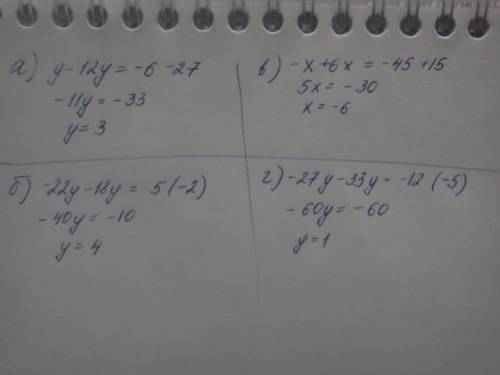 а) y-12y=-6-27
-11y=-33
y=3
в) -x+6x=-45+15
5x=-30
x=-6
б) -22y-18y=5(-2)
-40y=-10
y=4
г) -27y-33y=-12(-5)
-60y=-60
y=1